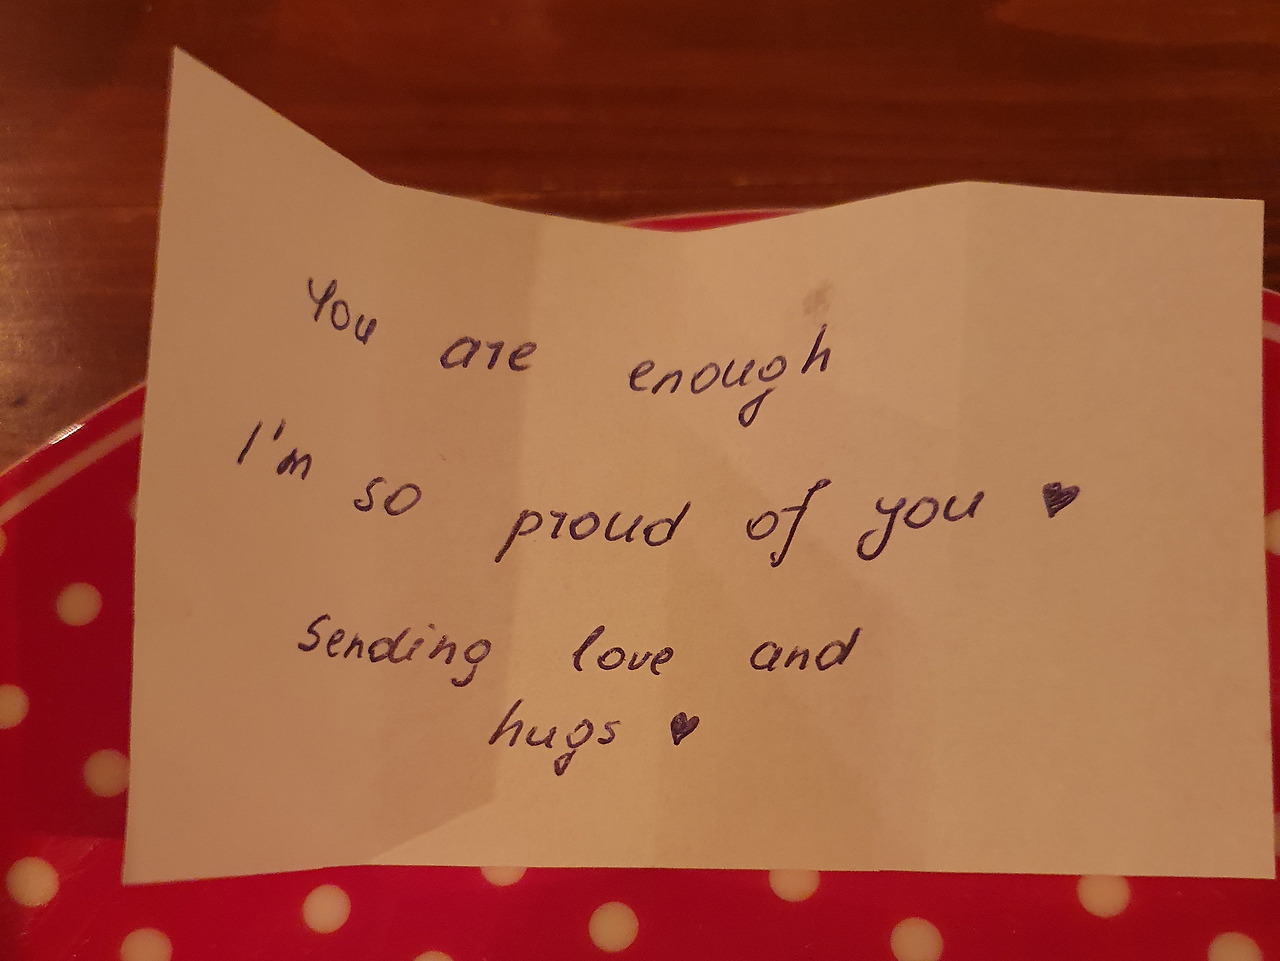 You are enough
I'm so proud of you ♥
Sending love and
hugs ♥